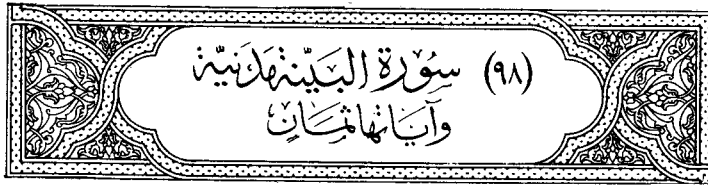 (٩٨) سورة البيّنة مدنية
وآياتها ثمان